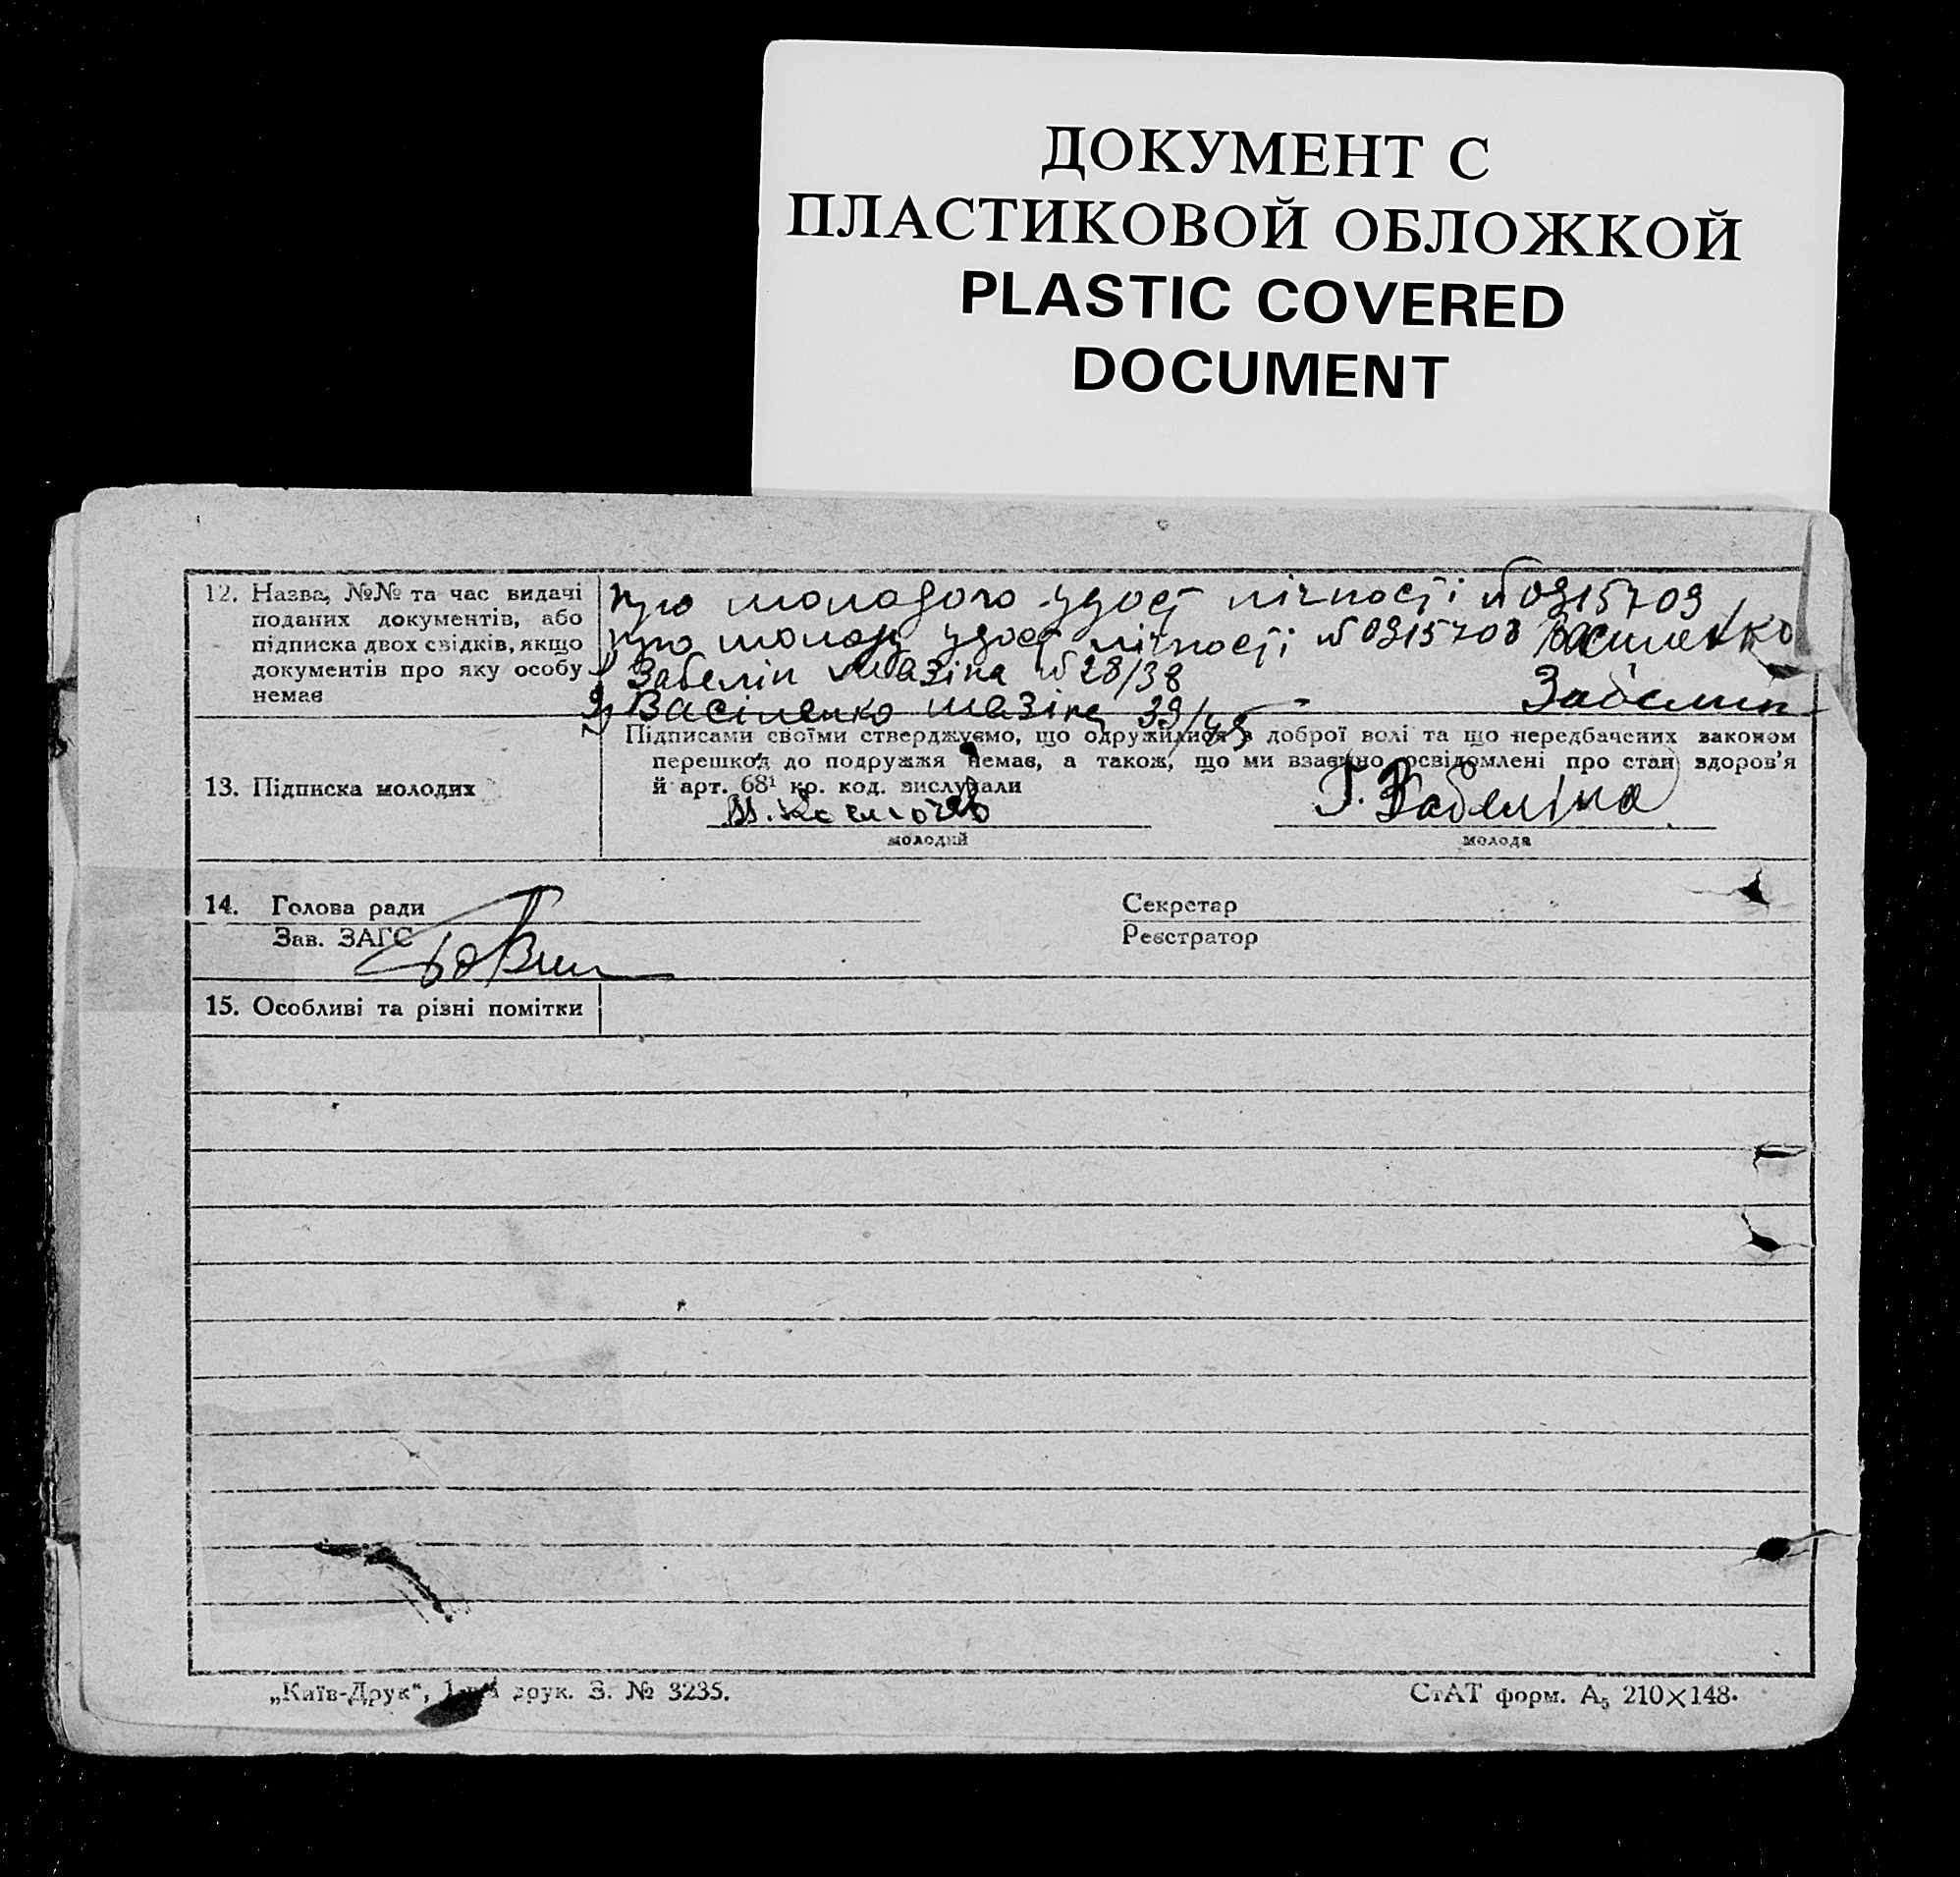 ДОКУМЕНТ С
ПЛАСТИКОВОЙ ОБЛОЖКОЙ
PLASTIC COVERED
DOCUMENT
12. Назва, №№ та час видачі
поданих документів, або
підписка двох свідків, якщо
документів про яку особу
немає
про молодого удост лічності № 0915709
про молоду удост лічності № 0915708 Василенко
1) Забелін Мазіна № 28/38
2) Васіленко мазіна 39/45 Забелин
13. Підписка молодих
Підписами своїми стверджуємо, що одружилися з доброї волі та що передбачених законом
перешкод до подружжя немає, а також, що ми взаємно освідомлені про стан здоров'я
й арт. 68¹ кр. код. вислухали
Г. Забеліна
молодий
молода
14. Голова ради
Секретар
Зав. ЗАГС
Реєстратор
15. Особливі та різні помітки
„Київ-Друк“, друк. З. № 3235.
СтАТ форм. А₅ 210×148.